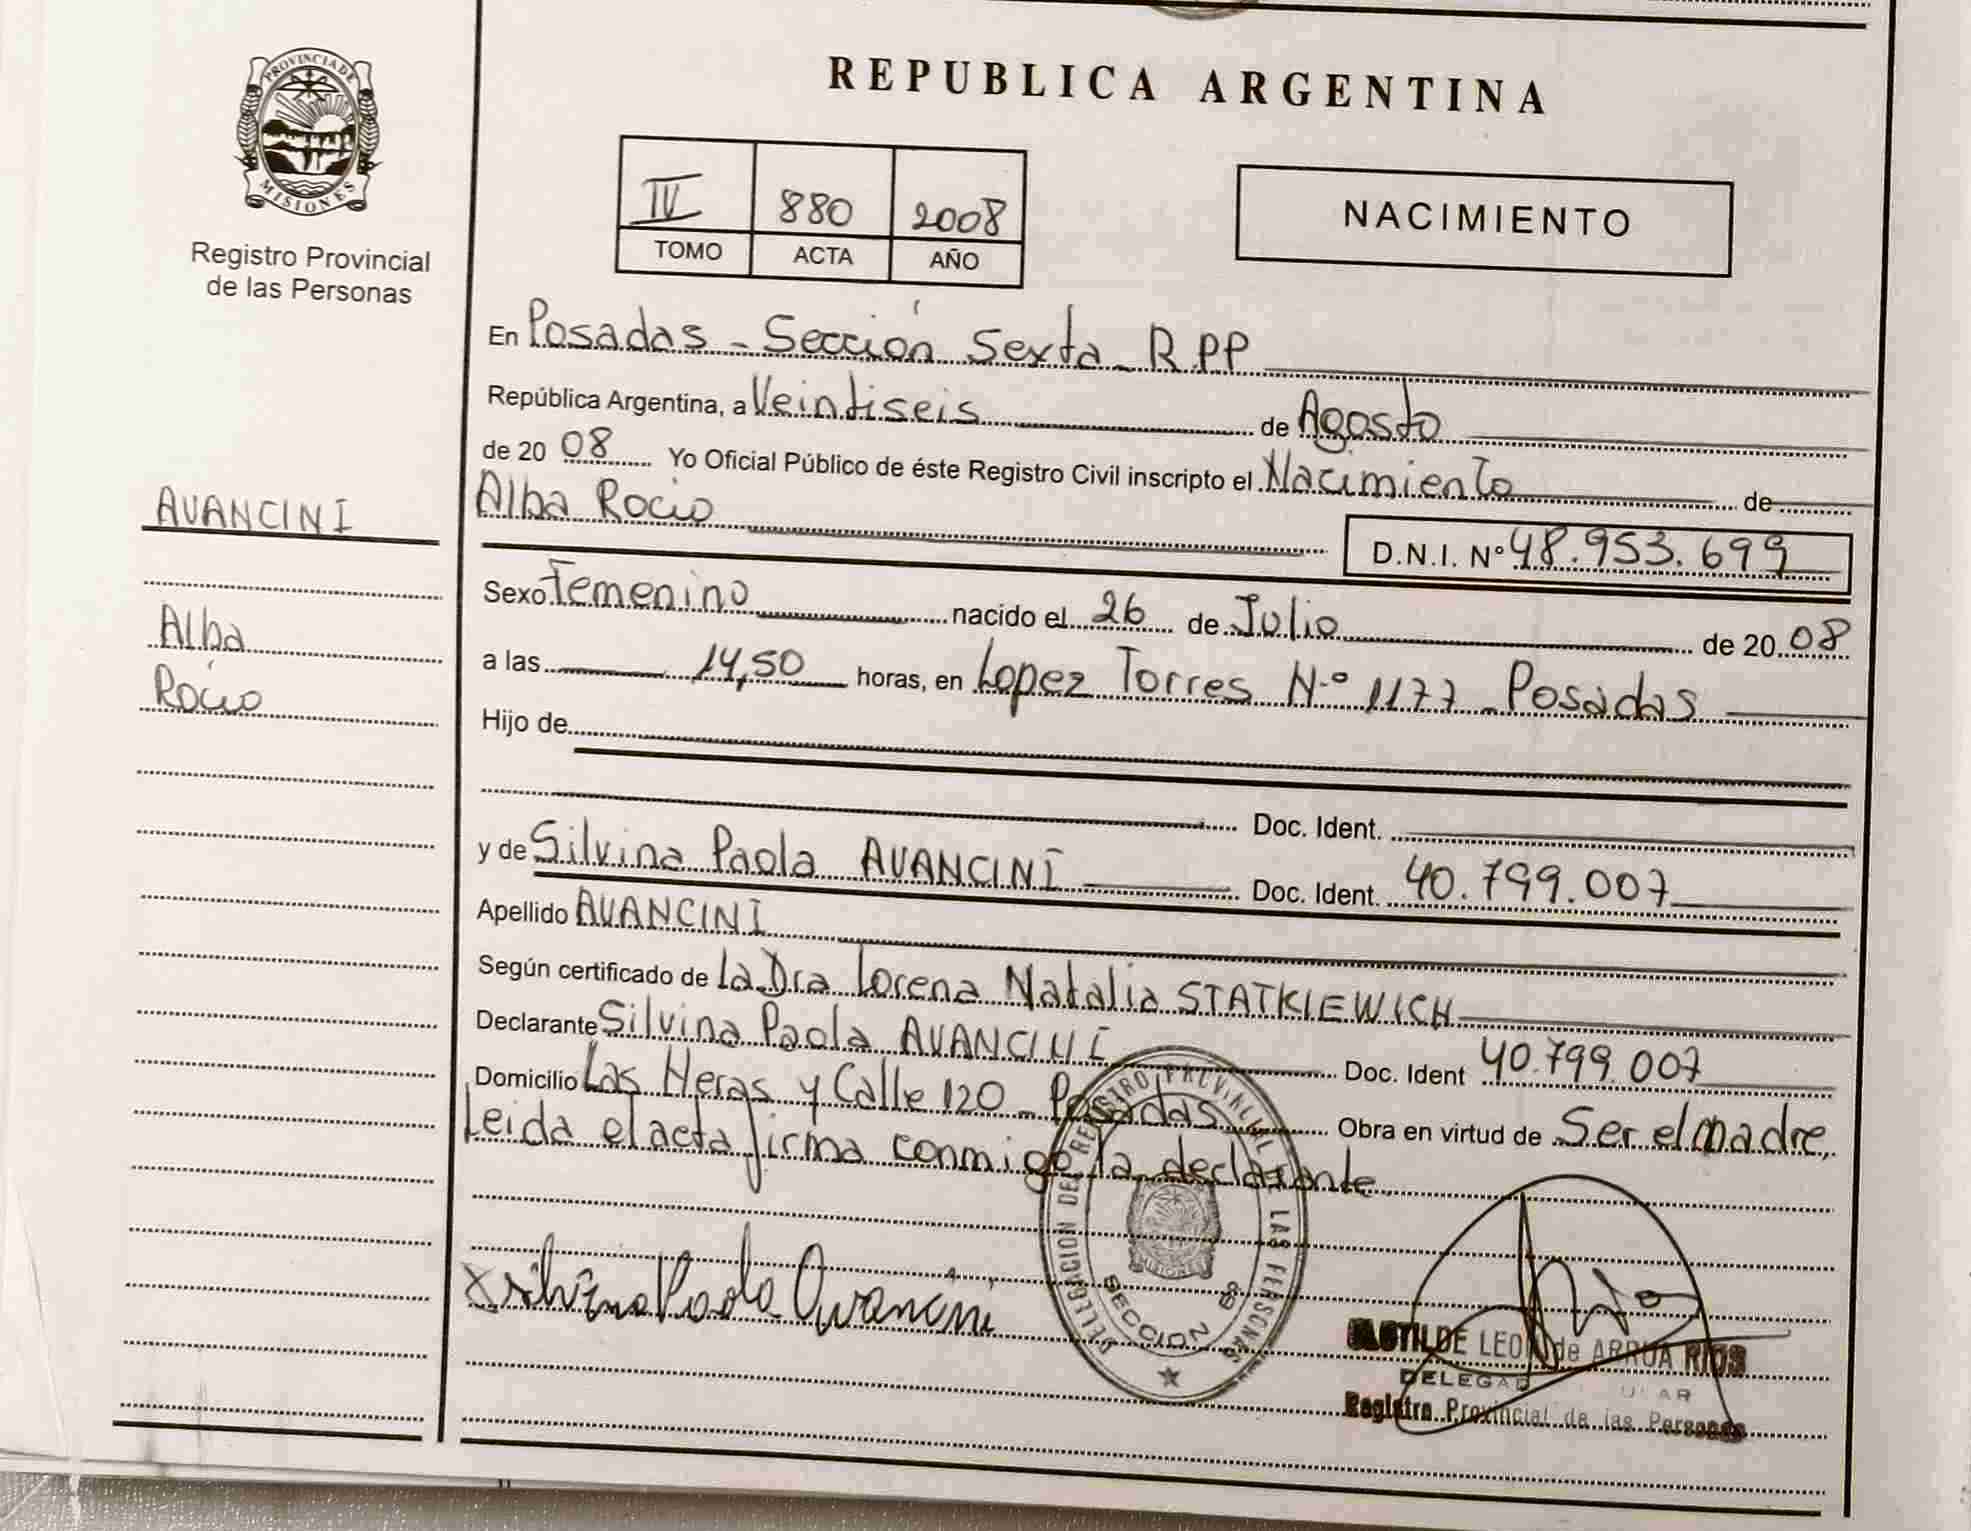 PROVINCIA DE
MISIONES
Registro Provincial
de las Personas
REPUBLICA ARGENTINA
IV 880 2008
TOMO ACTA AÑO
NACIMIENTO
En Posadas - Sección Sexta - R.P.P
República Argentina, a Veintiseis de Agosto
de 20 08 Yo Oficial Público de éste Registro Civil inscripto el Nacimiento de
Alba Rocio D.N.I. Nº 48.953.699
AVANCINI
Alba
Rocio
Sexo Femenino nacido el 26 de Julio de 20 08
a las 14,50 horas, en Lopez Torres N.º 1177 - Posadas
Hijo de
Doc. Ident.
y de Silvina Paola AVANCINI Doc. Ident. 40.799.007
Apellido AVANCINI
Según certificado de La Dra Lorena Natalia STATKIEWICH
Declarante Silvina Paola AVANCINI Doc. Ident 40.799.007
Domicilio Las Heras y Calle 120 - Posadas Obra en virtud de Ser el madre,
Leida el acta firma conmigo la declarante
DELEGACION DEL REGISTRO PROVINCIAL LAS PERSONAS
SECCION
Silvina Paola Avancini
CLOTILDE LEON de ARRUA RIOS
Registro Provincial de las Personas